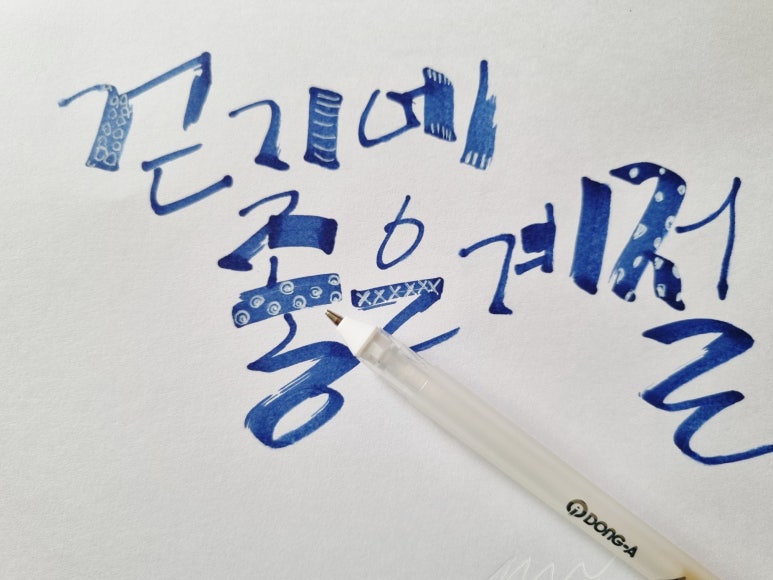 걷기에
좋은 계절
DONG-A